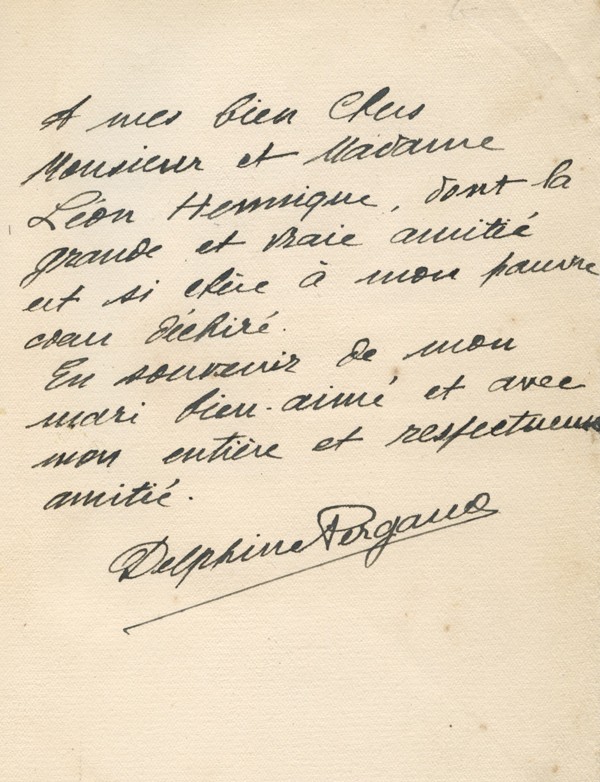 A mes bien chers
Monsieur et Madame
Léon Hennique, dont la
grande et vraie amitié
est si chère à mon pauvre
cœur déchiré.
En souvenir de mon
mari bien-aimé et avec
mon entière et respectueuse
amitié.
Delphine Pergaud